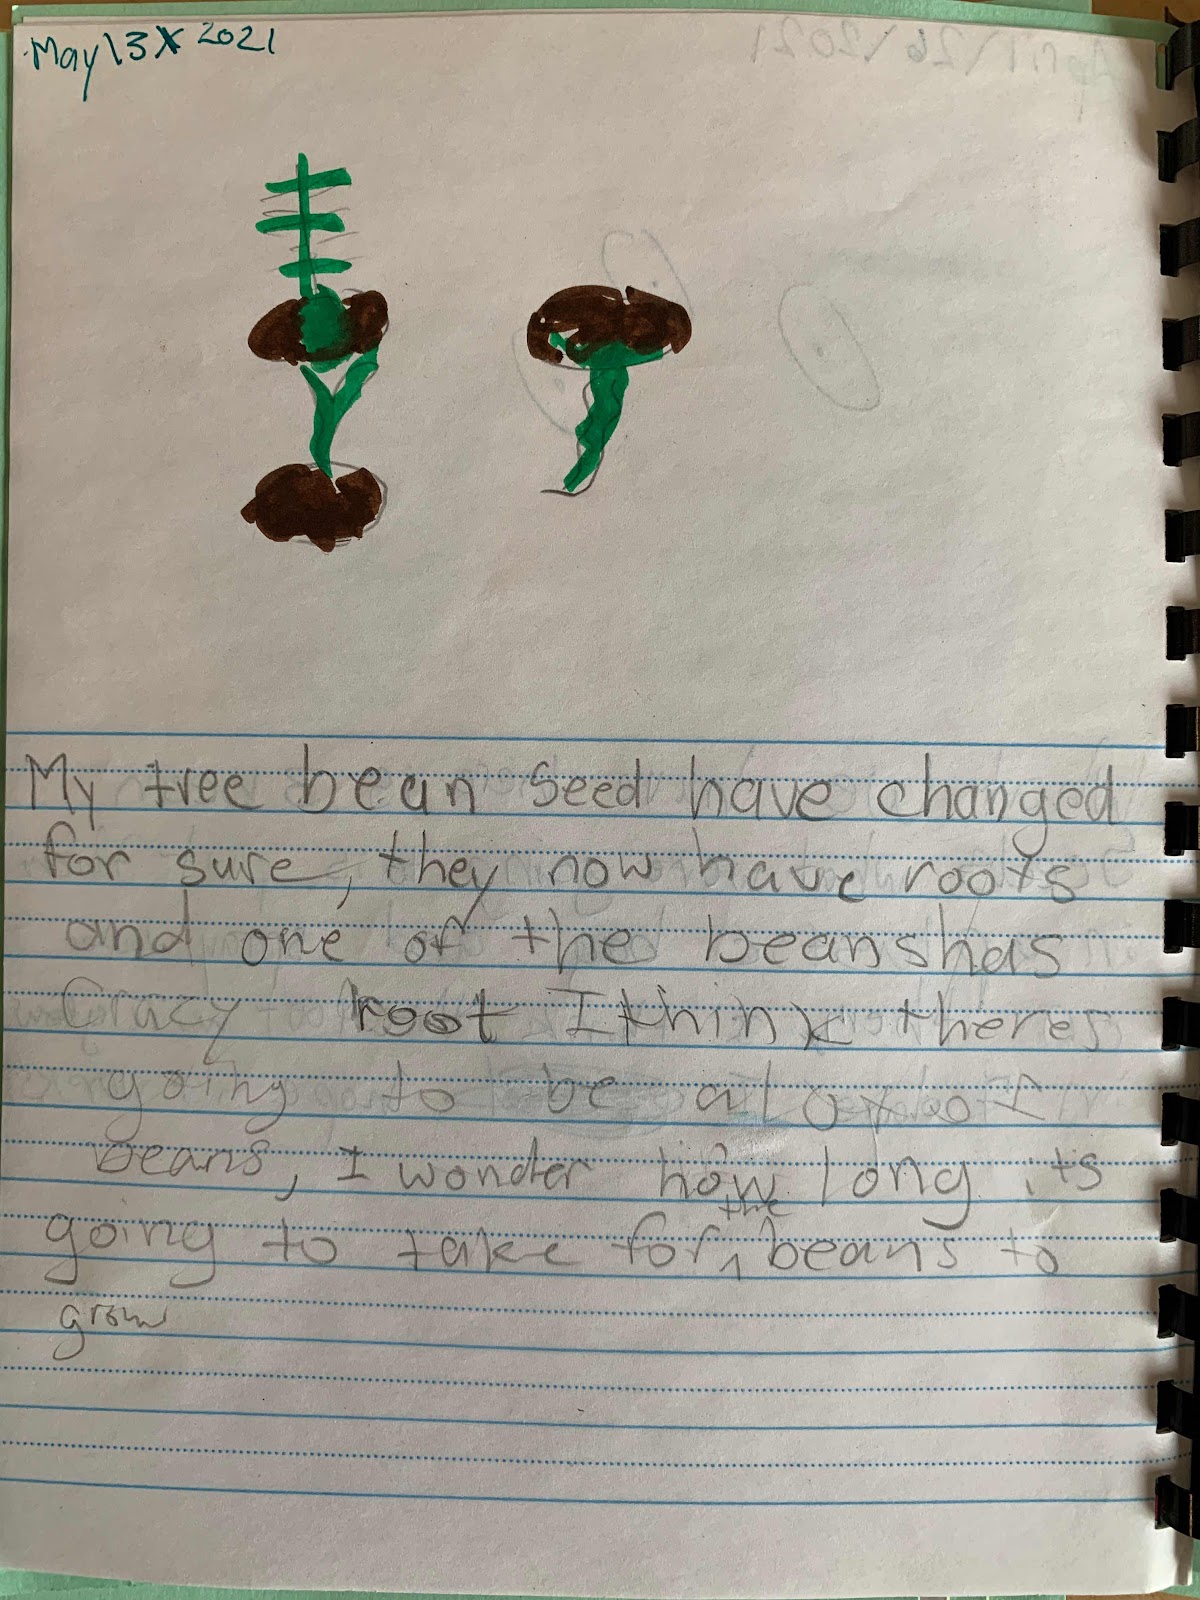 May \3X 2021
My tree bean seed have changed
for sure, they now have roots
and one of the beans has
Crazy root I think theres
going to be alot of
beans, I wonder how long its
going to take for ^the beans to
grow
April \26\2021